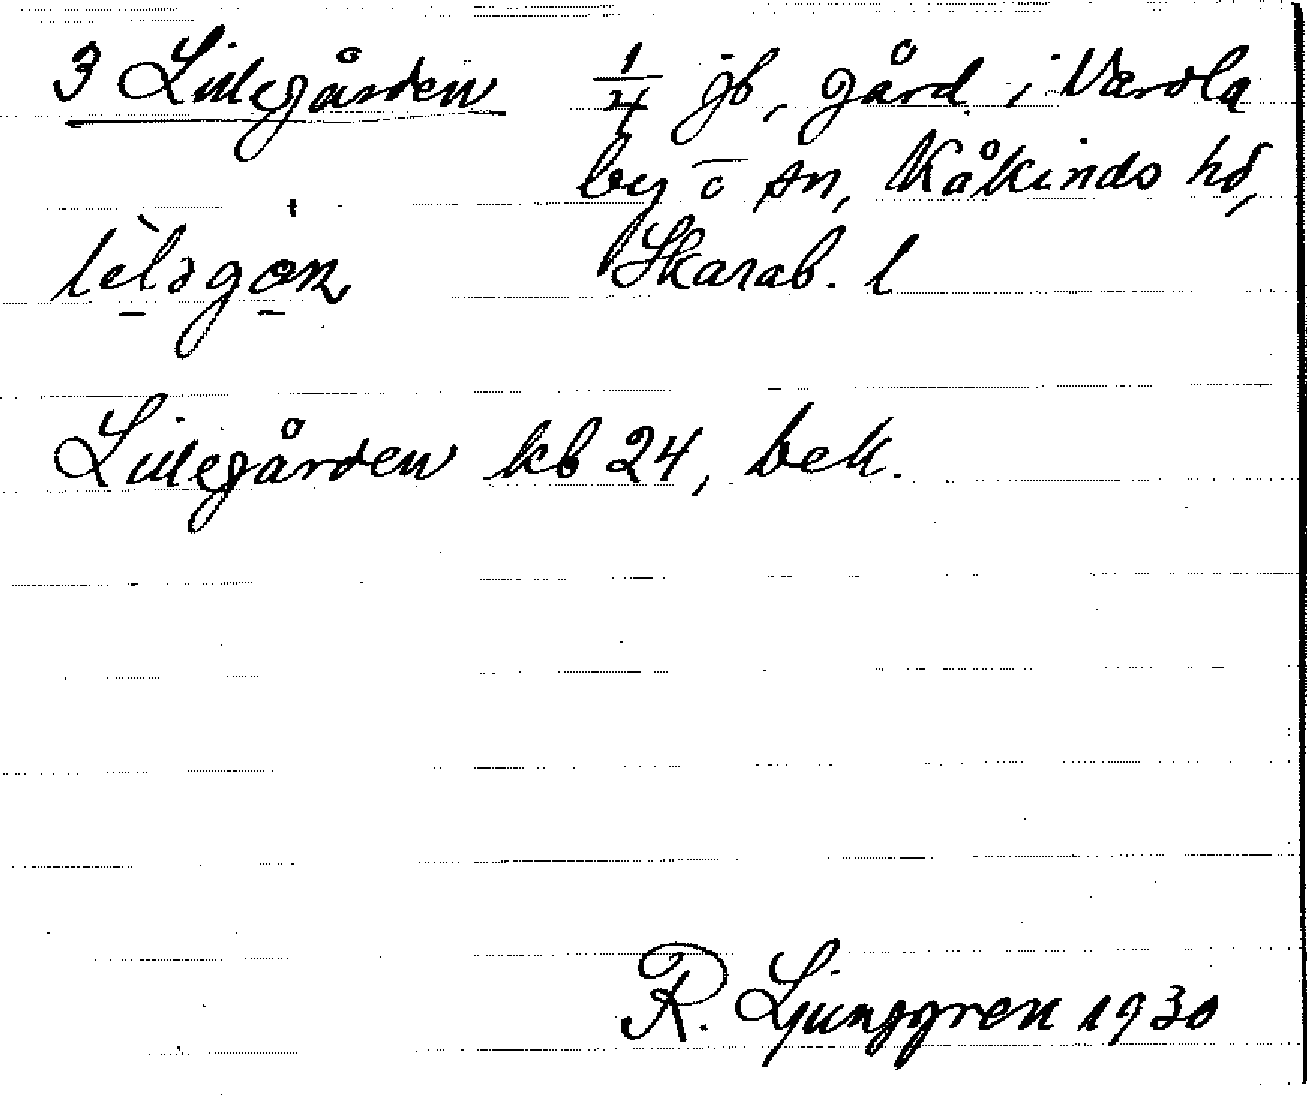 3 Lillegården 1/4 jb, gård i Värsla
by o sn, Kåkinds hd,
Skarab. l
Lillegården kb 24, bek.
R. Ljunggren 1930